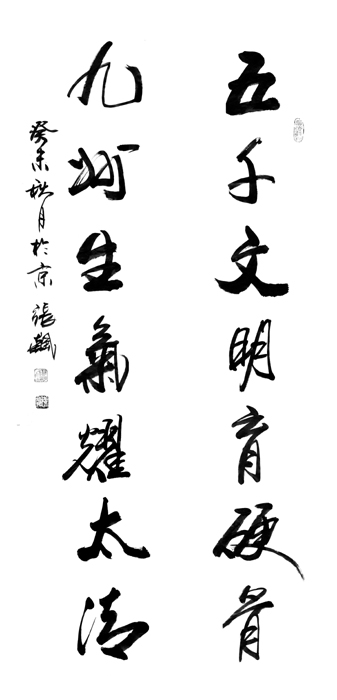 五千文明育硬骨
九州生氣耀太清
癸未秋月於京 張飆